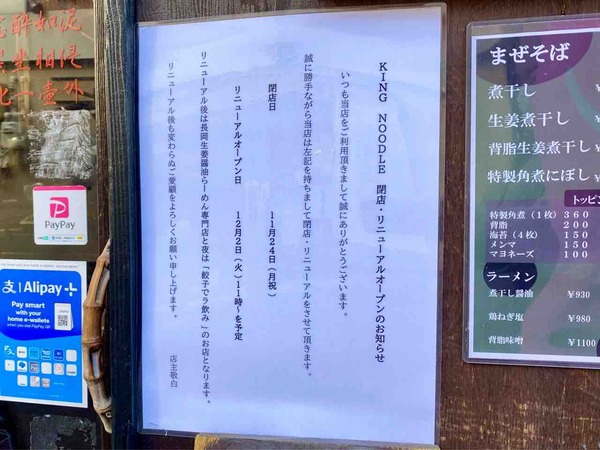 KING NOODLE 閉店・リニューアルオープンのお知らせ
いつも当店をご利用頂きまして誠にありがとうございます。
誠に勝手ながら当店は左記を持ちまして閉店・リニューアルをさせて頂きます。
閉店日 11月24日(月祝)
リニューアルオープン日 12月2日(火)11時~を予定
リニューアル後は長岡生姜醤油らーめん専門店と夜は「餃子でラ飲み」のお店となります。
リニューアル後も変わらぬご愛顧をよろしくお願い申し上げます。
店主敬白
まぜそば
煮干し
生姜煮干し
背脂生姜煮干し
特製角煮にぼし
トッピン
特製角煮(1枚) 360
背脂 200
海苔(4枚) 150
メンマ 150
マヨネーズ 100
ラーメン
煮干し醤油 ¥930
鶏ねぎ塩 ¥980
背脂味噌 ¥1100
酔如泥
坐相侵
一壷外
PayPay
支 Alipay+
Pay smart
with your
home e-wallets